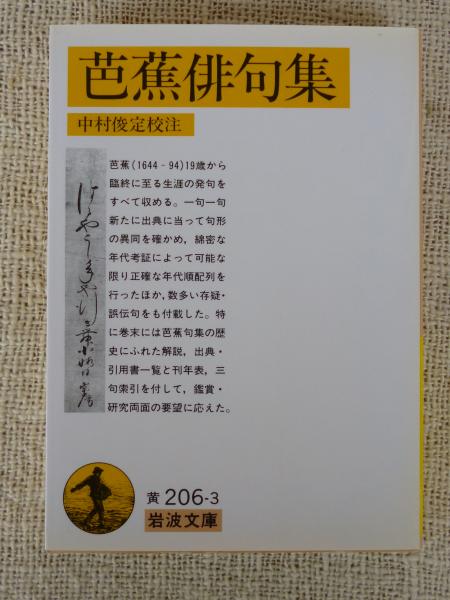 芭蕉俳句集
中村俊定校注
芭蕉(1644‐94)19歳から
臨終に至る生涯の発句を
すべて収める。一句一句
新たに出典に当って句形
の異同を確かめ，綿密な
年代考証によって可能な
限り正確な年代順配列を
行ったほか，数多い存疑・
誤伝句をも付載した。特
に巻末には芭蕉句集の歴
史にふれた解説，出典・
引用書一覧と刊年表，三
句索引を付して，鑑賞・
研究両面の要望に応えた。
黄 206-3
岩波文庫